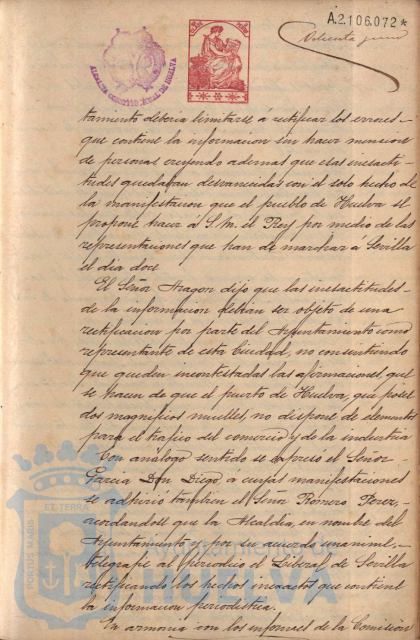 A.2106.072*
Ochenta y uno
ALCALDIA CONSTITUCIONAL DE HUELVA
tamiento deberia limitarse á rectificar los errores-
que contiene la informacion sin hacer mencion
de personas creyendo ademas que esas inexacti-
tudes quedaban desvanecidas con el solo hecho de
la manifestacion que el pueblo de Huelva se
propone hacer á S. M. el Rey por medio de las
representaciones que han de marchar á Sevilla
el dia doce
El Señor Aragon dijo que las inexactitudes-
de la informacion debian ser objeto de una
rectificacion por parte del Ayuntamiento como
representante de esta Ciudad, no consintiendo
que queden incontestadas las afirmaciones que
se hacen de que el puerto de Huelva, que posee
dos magnificos muelles, no dispone de elementos
para el trafico del comercio y de la industria
Con análogo sentido se espresó el Señor
Garcia Don Diego, a cuyas manifestaciones
se adhirió tambien el Señor Romero Perez,
acordandose que la Alcaldia, en nombre del
Ayuntamiento y por su acuerdo unanime-
telegrafie al periodico el Liberal de Sevilla
rectificando los hechos inexactos que contiene
la informacion periodistica.
En armonia con los informes de la Comision
PORTUS MARIS ET TERRÆ
Ayuntamiento de
HUELVA